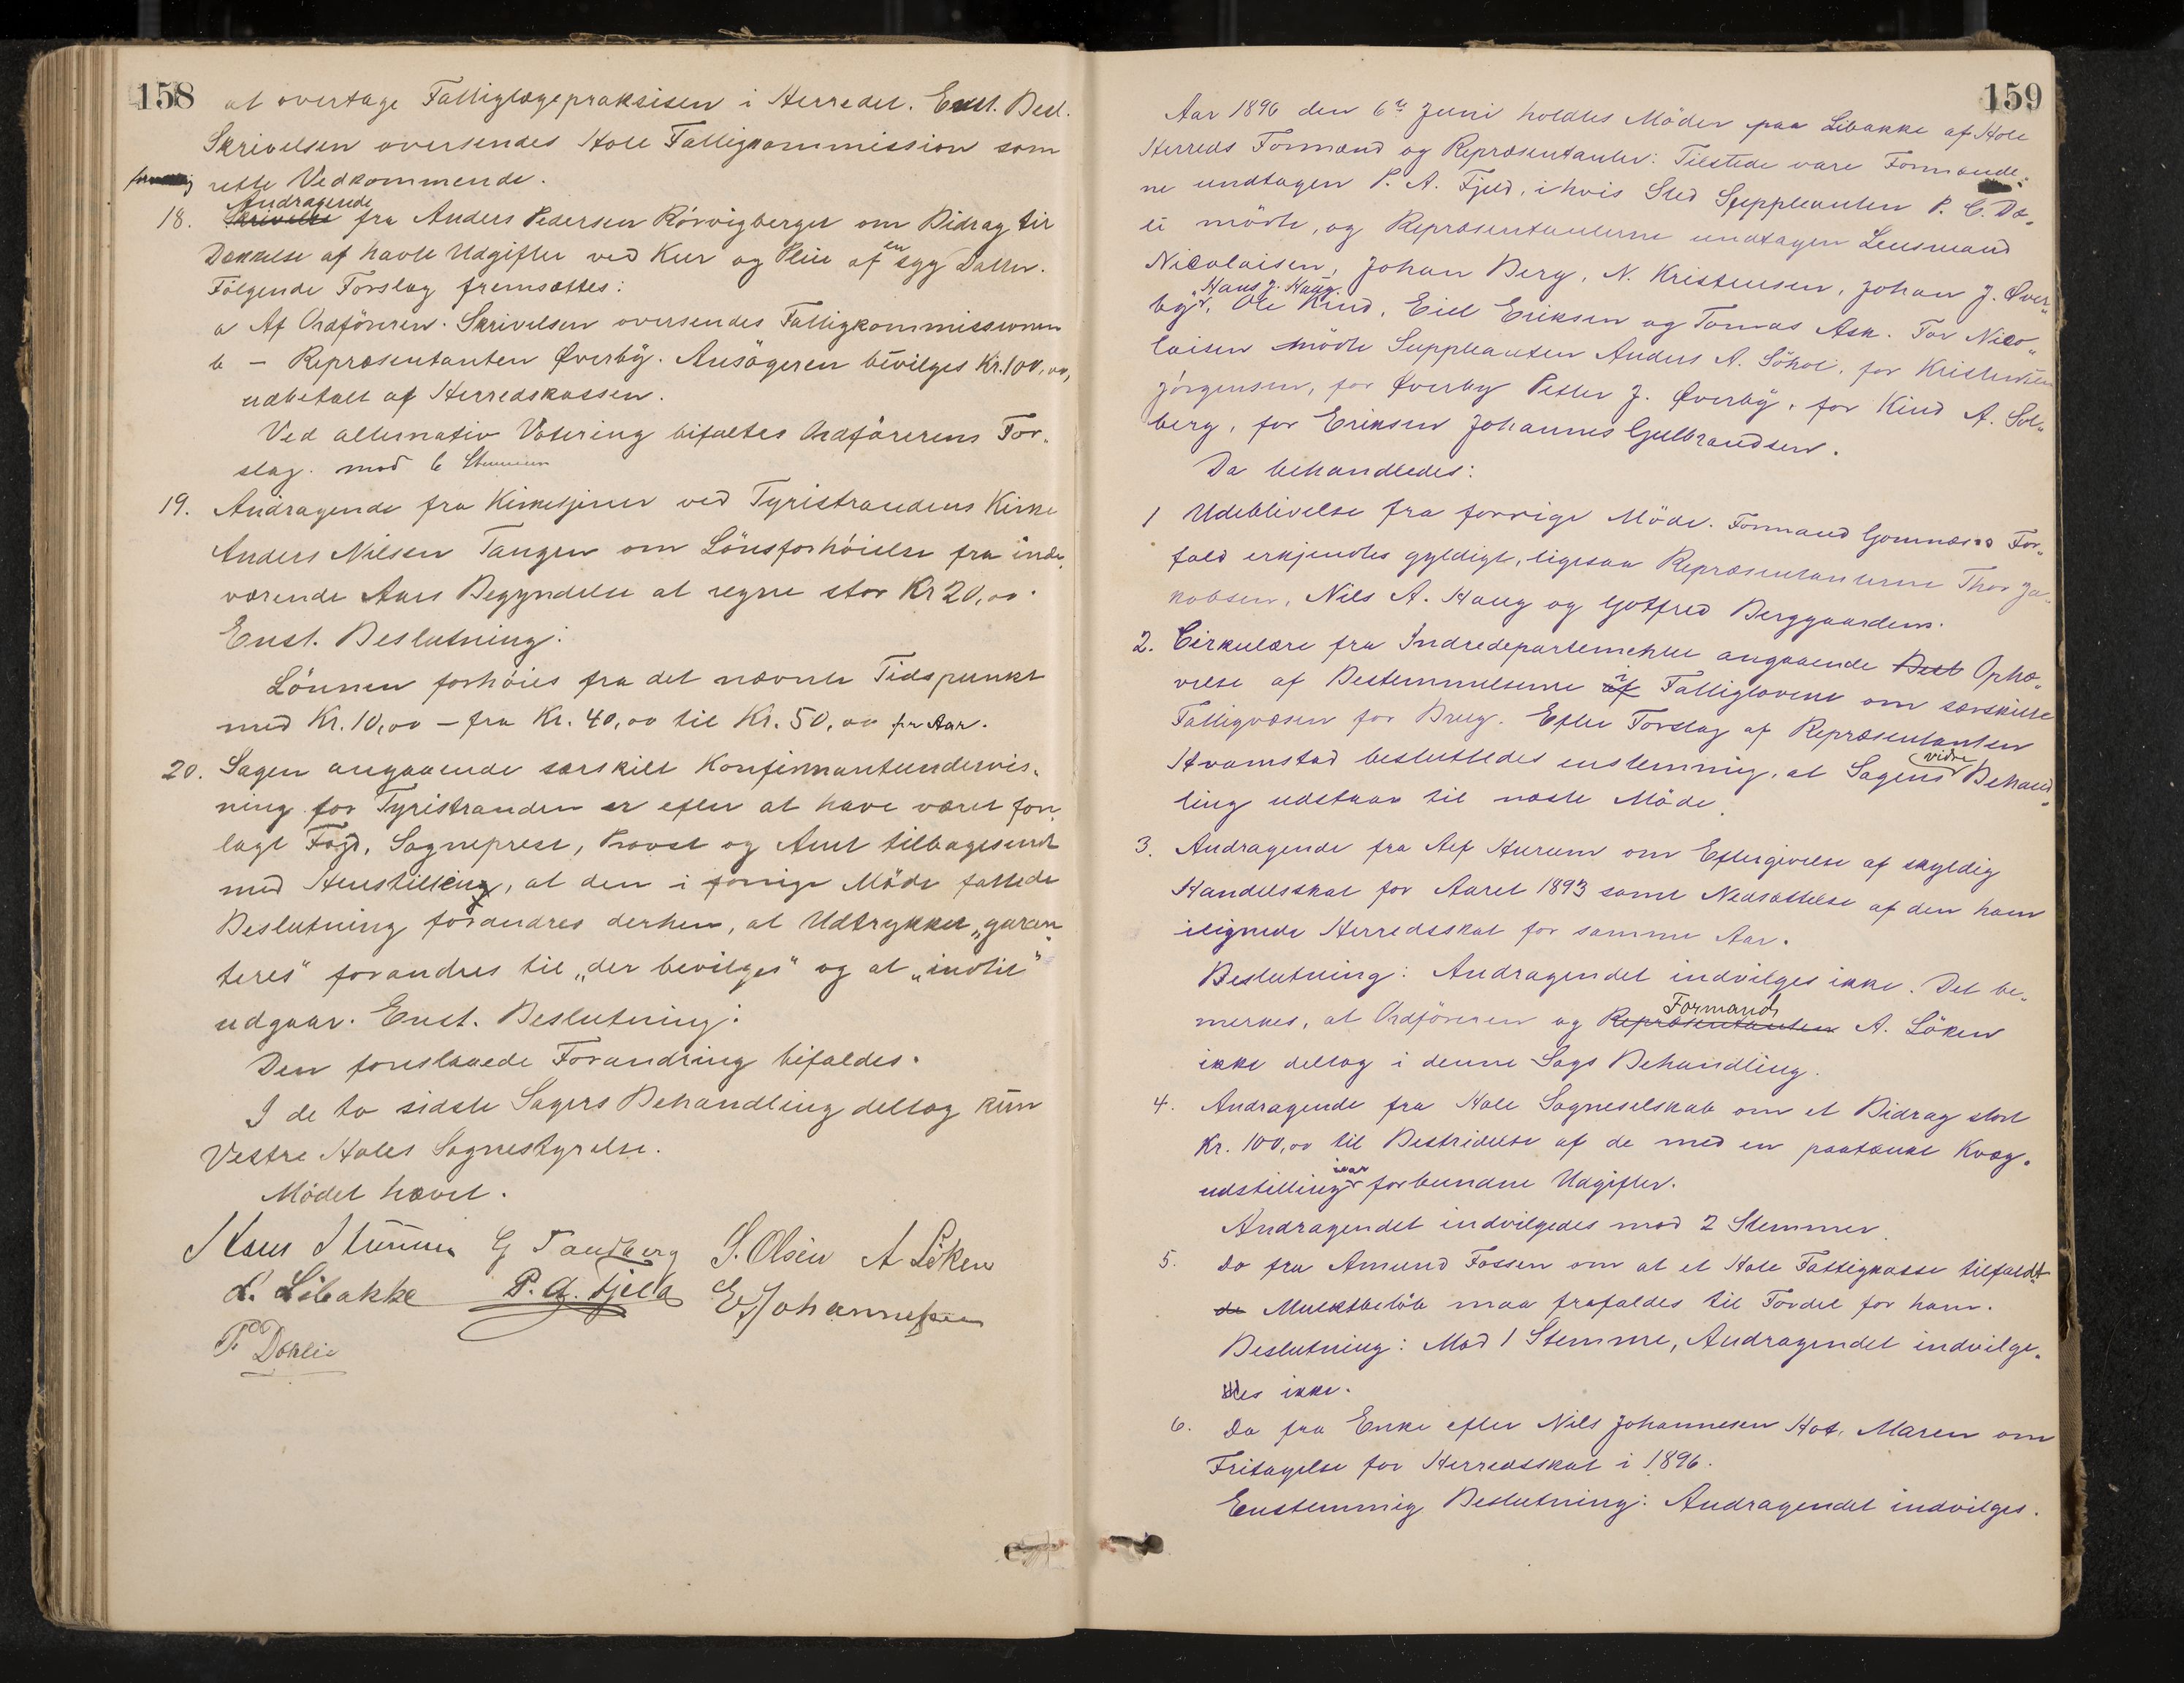 158
at overtage Fattiglægepraksisen i Herredet. Enst. Besl.
Skrivelsen oversendes Hole Fattigkommission som
rette Vedkommende.
Andragende
18. Skrivelse fra Anders Pedersen Rörvigberget om Bidrag til
Dækkelse af havte Udgifter ved Kur og Pleie af en syg Datter.
Fölgende Forslag fremsættes:
a Af Ordföreren. Skrivelsen oversendes Fattigkommissionen
b – Repræsentanten Øverby. Ansögeren bevilges Kr. 100,00,
udbetalt af Herredskassen.
Ved alternativ Votering bifaltes Ordförerens For-
slag. mod 6 Stemmer
19. Andragende fra Kirketjener ved Tyristrandens Kirke
Anders Nilsen Tangen om Lönsforhöielse fra inde-
værende Aars Begyndelse at regne stor Kr 20,00.
Enst. Beslutning:
Lönnen forhöies fra det nævnte Tidspunkt
med Kr. 10,00 – fra Kr. 40,00 til Kr. 50,00 pr Aar.
20. Sagen angaaende særskilt Konfirmantundervis-
ning for Tyristranden er efter at have været fore-
lagt Fogd, Sogneprest, Provst og Amt tilbagesendt
med Henstilling, at den i forrige Möde fattede
Beslutning forandres derhen, at Udtrykket „garan-
teres" forandres til „der bevilges" og at „indtil"
udgaar. Enst. Beslutning:
Den foreslaaede Forandring bifaldes.
I de to sidste Sagers Behandling deltog kun
Vestre Holes Sognestyrelse.
Mödet hævet.
Hans G Tandberg S. Olsen A Löken
L. Libakke P. A. Fjeld E Johannesen
P. Dæhlie
159
Aar 1896 den 6te Juni holdtes Möder paa Libakke af Hole
Herreds Formænd og Repræsentanter: Tilstede vare Formænde-
ne undtagen P. A. Fjeld, i hvis Sted Suppleanten P. C. Dæ-
li mödte, og Repræsentanterne undtagen Lensmand
Nicolaisen, Johan Berg, N. Kristensen, Johan J. Øver-
Hans J. Haug.
by, Ole Kind, Eiel Eriksen og Tomas Ask. For Nico-
laisen mödte Suppleanten Anders A. Söhol, for Kristensen
Jörgensen, for Øverby Petter J. Øverby, for Kind A. Sol-
berg, for Eriksen Johannes Gulbrandsen.
Da behandledes:
1 Udeblivelse fra forrige Möde. Formand Gomnæs's For-
fald erkjendtes gyldigt, ligesaa Repræsentanterne Thor Ja-
kobsen, Nils A. Haug og Gotfred Berggaarden.
2. Cirkulære fra Indredepartementet angaaende Best Ophæ-
velse af Bestemmelserne af i Fattiglovene om særskilte
Fattigvæsen for Brug. Efter Forslag af Repræsentanten
Hvamstad besluttedes enstemmig, at Sagens vidre Behand-
ling udstaar til næste Möde.
3. Andragende fra Alf Hurum om Eftergivelse af skyldig
Handelsskat for Aaret 1893 samt Nedsættelse af den ham
ilignede Herredsskat for samme Aar.
Beslutning: Andragendet indvilges ikke. Det be-
Formand
merkes, at Ordföreren og Repræsentanten A. Löken
ikke deltog i denne Sags Behandling.
4. Andragende fra Hole Sogneselskab om et Bidrag stort
Kr. 100,00 til Bestridelse af de med en paatænkt Kvæg-
udstilling iaar forbundne Udgifter.
Andragendet indvilgedes mod 2 Stemmer.
5. Do fra Amund Fossen om at et Hole Fattigkasse tilfaldt
de Mulktbelöb maa frafaldes til Fordel for ham.
Beslutning: Mod 1 Stemme, Andragendet indvilge-
des ikke.
6. Do fra Enke efter Nils Johannesen Hof, Maren om
Fritagelse for Herredsskat i 1896.
Enstemmig Beslutning: Andragendet indvilges.